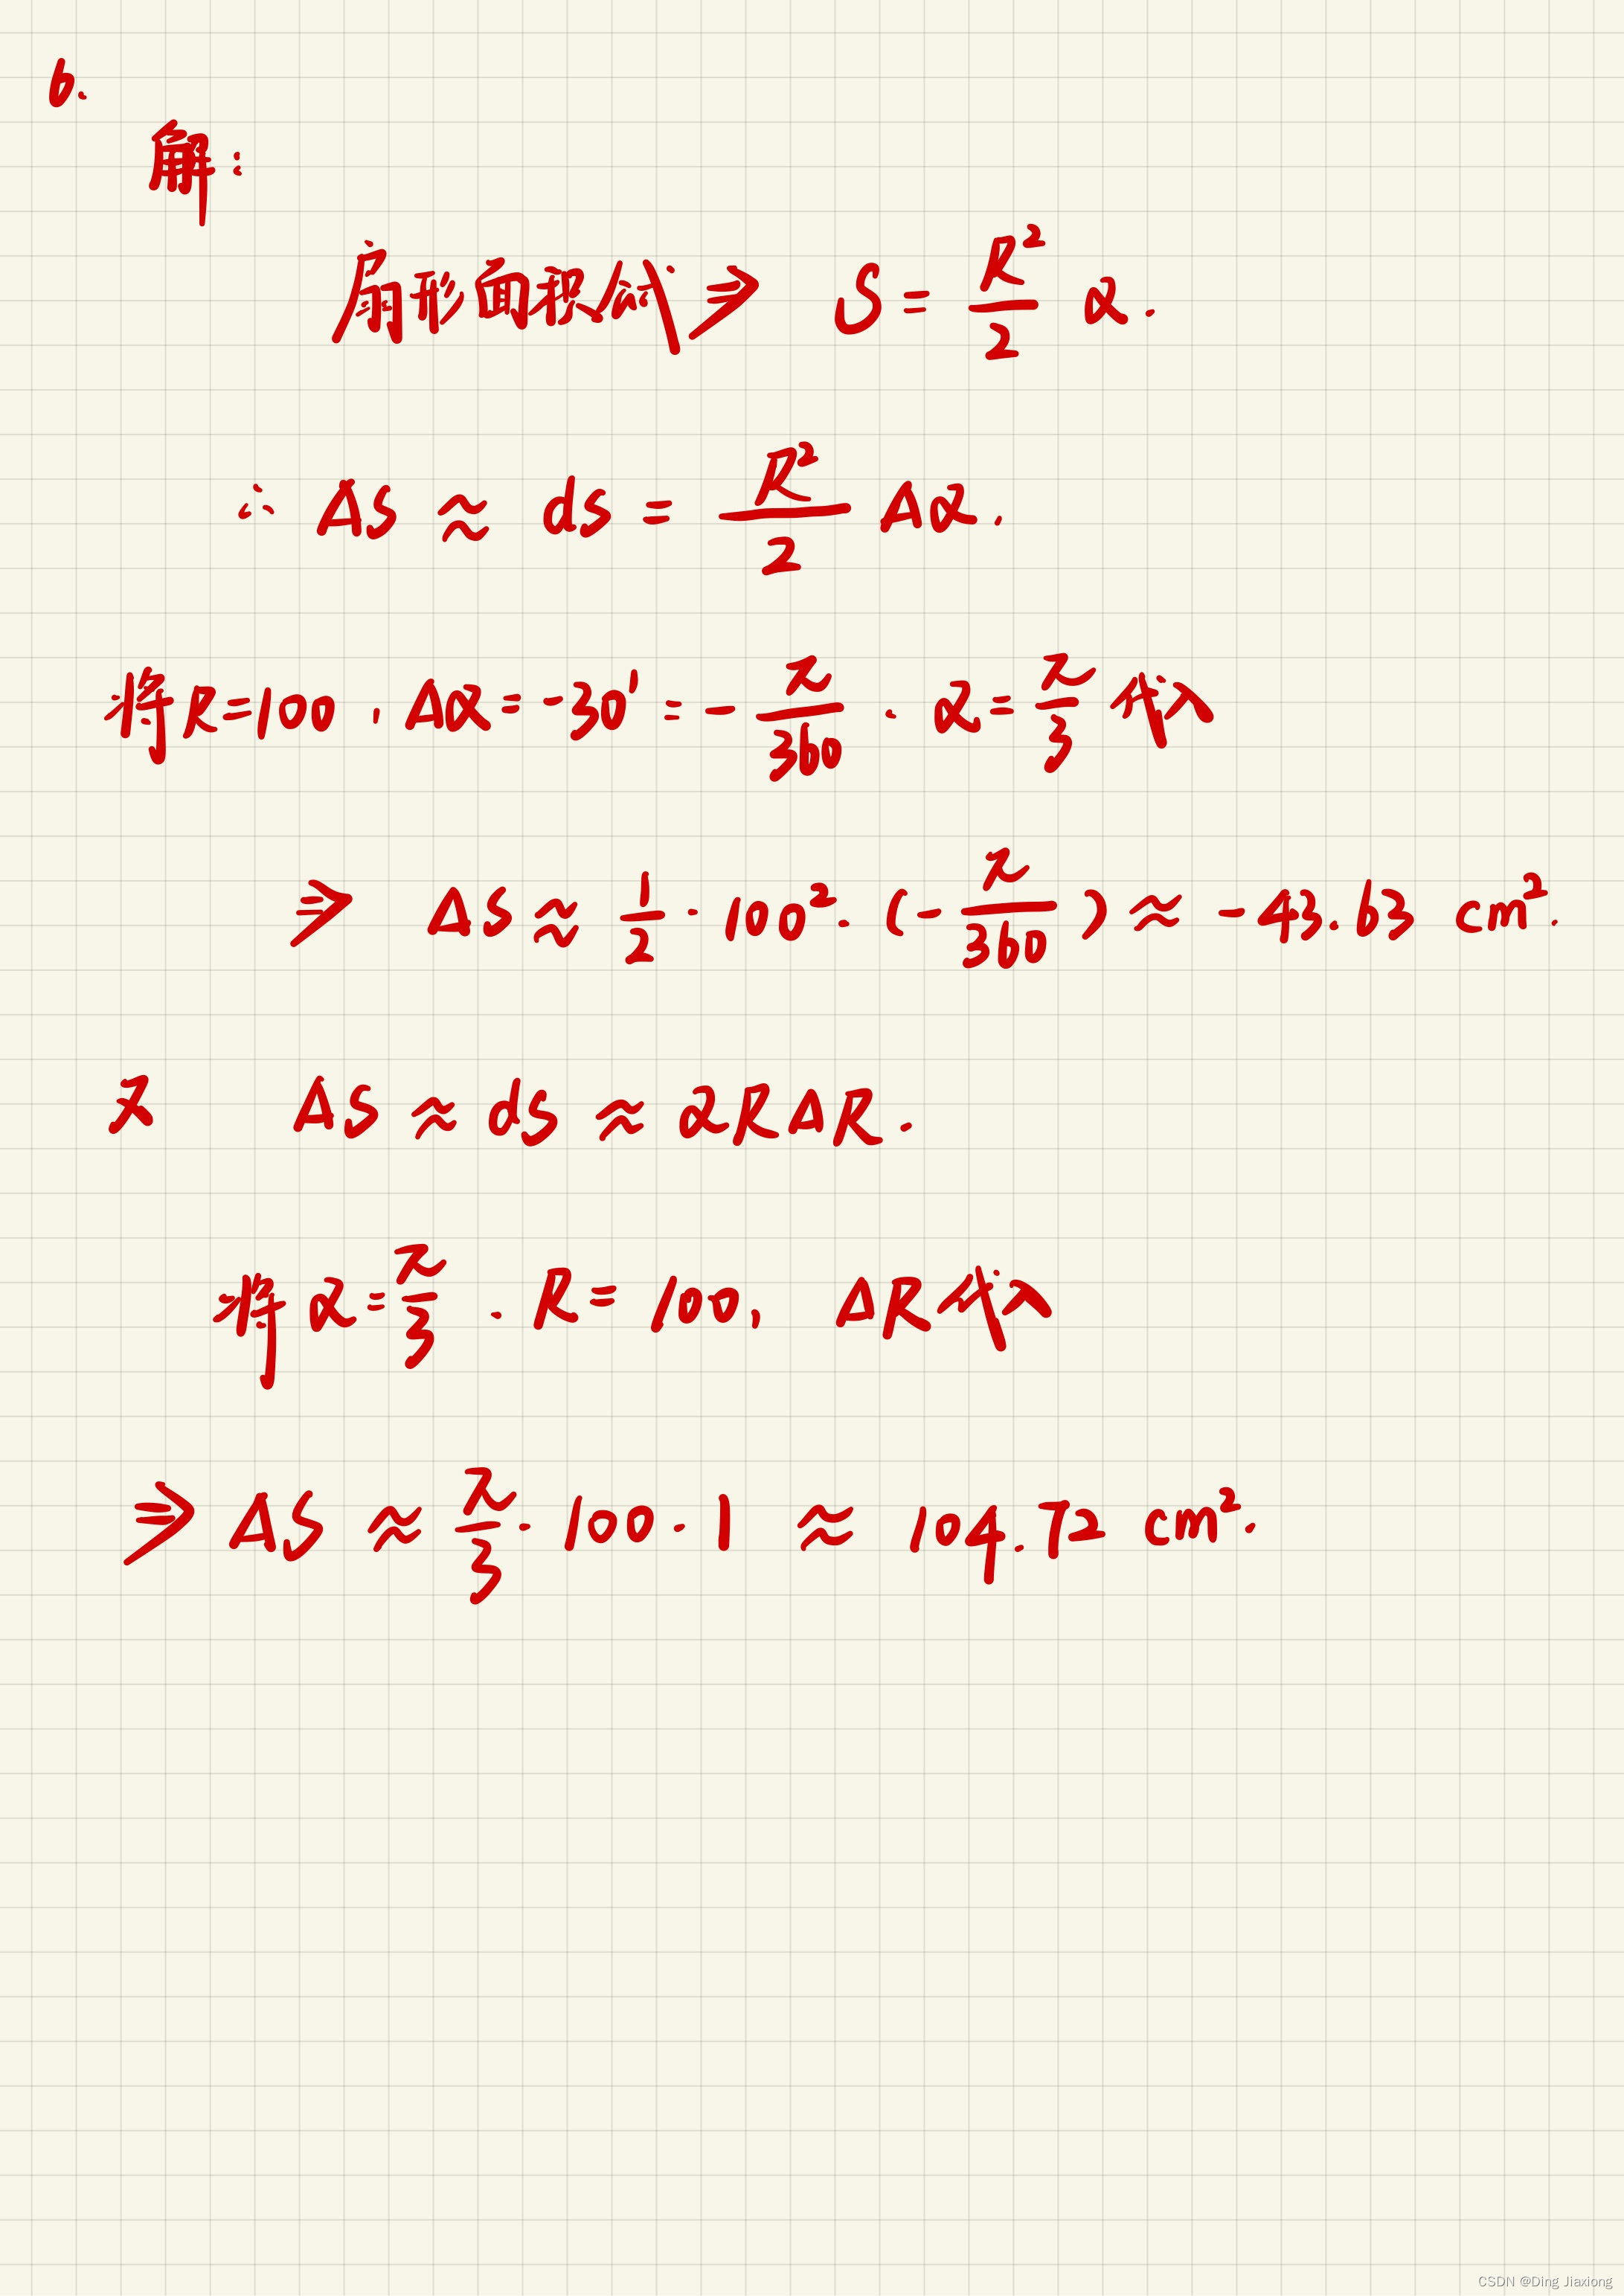 6.
解:
扇形面积公式 ⇒ S = R²/2 α.
∴ ΔS ≈ ds = R²/2 Δα.
将R=100, Δα=-30′=-π/360. α=π/3 代入
⇒ ΔS ≈ 1/2 · 100² · (-π/360) ≈ -43.63 cm².
又 ΔS ≈ ds ≈ αRΔR.
将 α=π/3. R=100, ΔR代入
⇒ ΔS ≈ π/3 · 100 · 1 ≈ 104.72 cm².
CSDN @Ding Jiaxiong